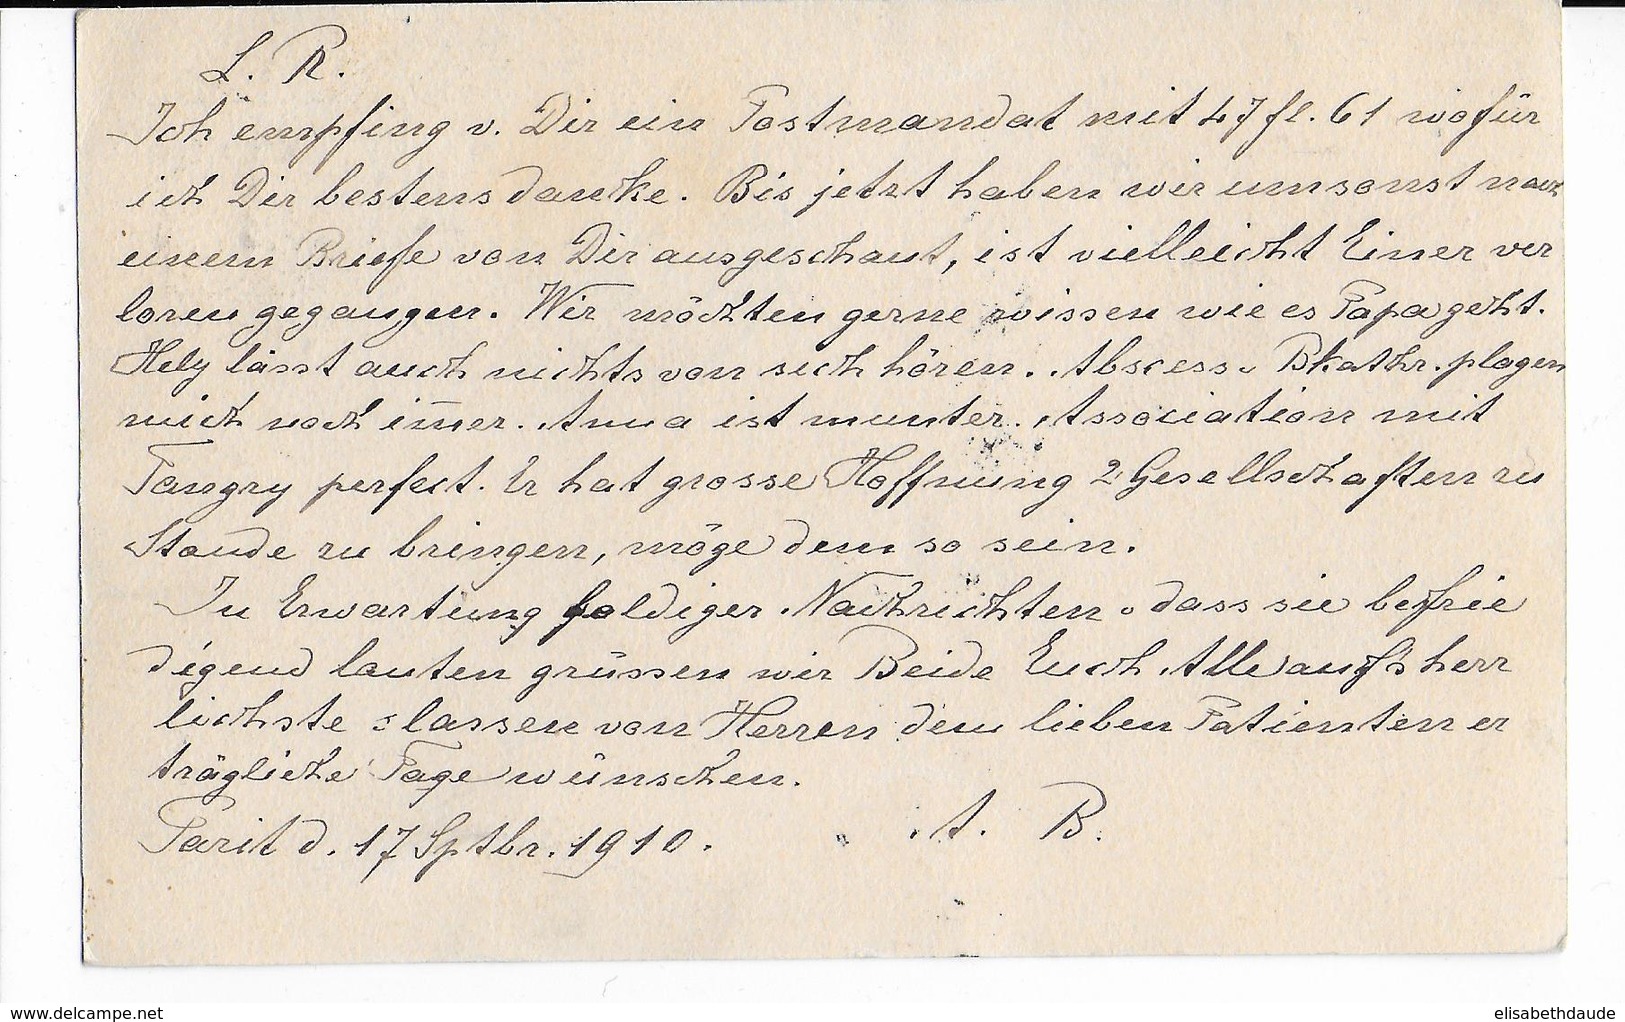 L. R.
Ich empfing v. Dir ein Postmandat mit 47 fl. 61 wofür
ich Dir bestens danke. Bis jetzt haben wir umsonst nach
einem Briefe von Dir ausgeschaut, ist vielleicht Einer ver
loren gegangen. Wir möchten gerne wissen wie es Papa geht.
Hely lässt auch nichts von sich hören. Abscess u Bkathr. plagen
mich noch im̅er. Anna ist munter. Association mit
Tangry perfect. Er hat grosse Hoffnung 2 Gesellschaften zu
Stande zu bringen, möge dem so sein.
In Erwartung baldiger Nachrichten u dass sie befrie
digend lauten grüssen wir Beide Euch Alle auf's herr
lichste lassen von Herzen dem lieben Patienten er
trägliche Tage wünschen.
A. B.
Parit d. 17 Sptbr. 1910.
www.delcampe.net
elisabethdaude